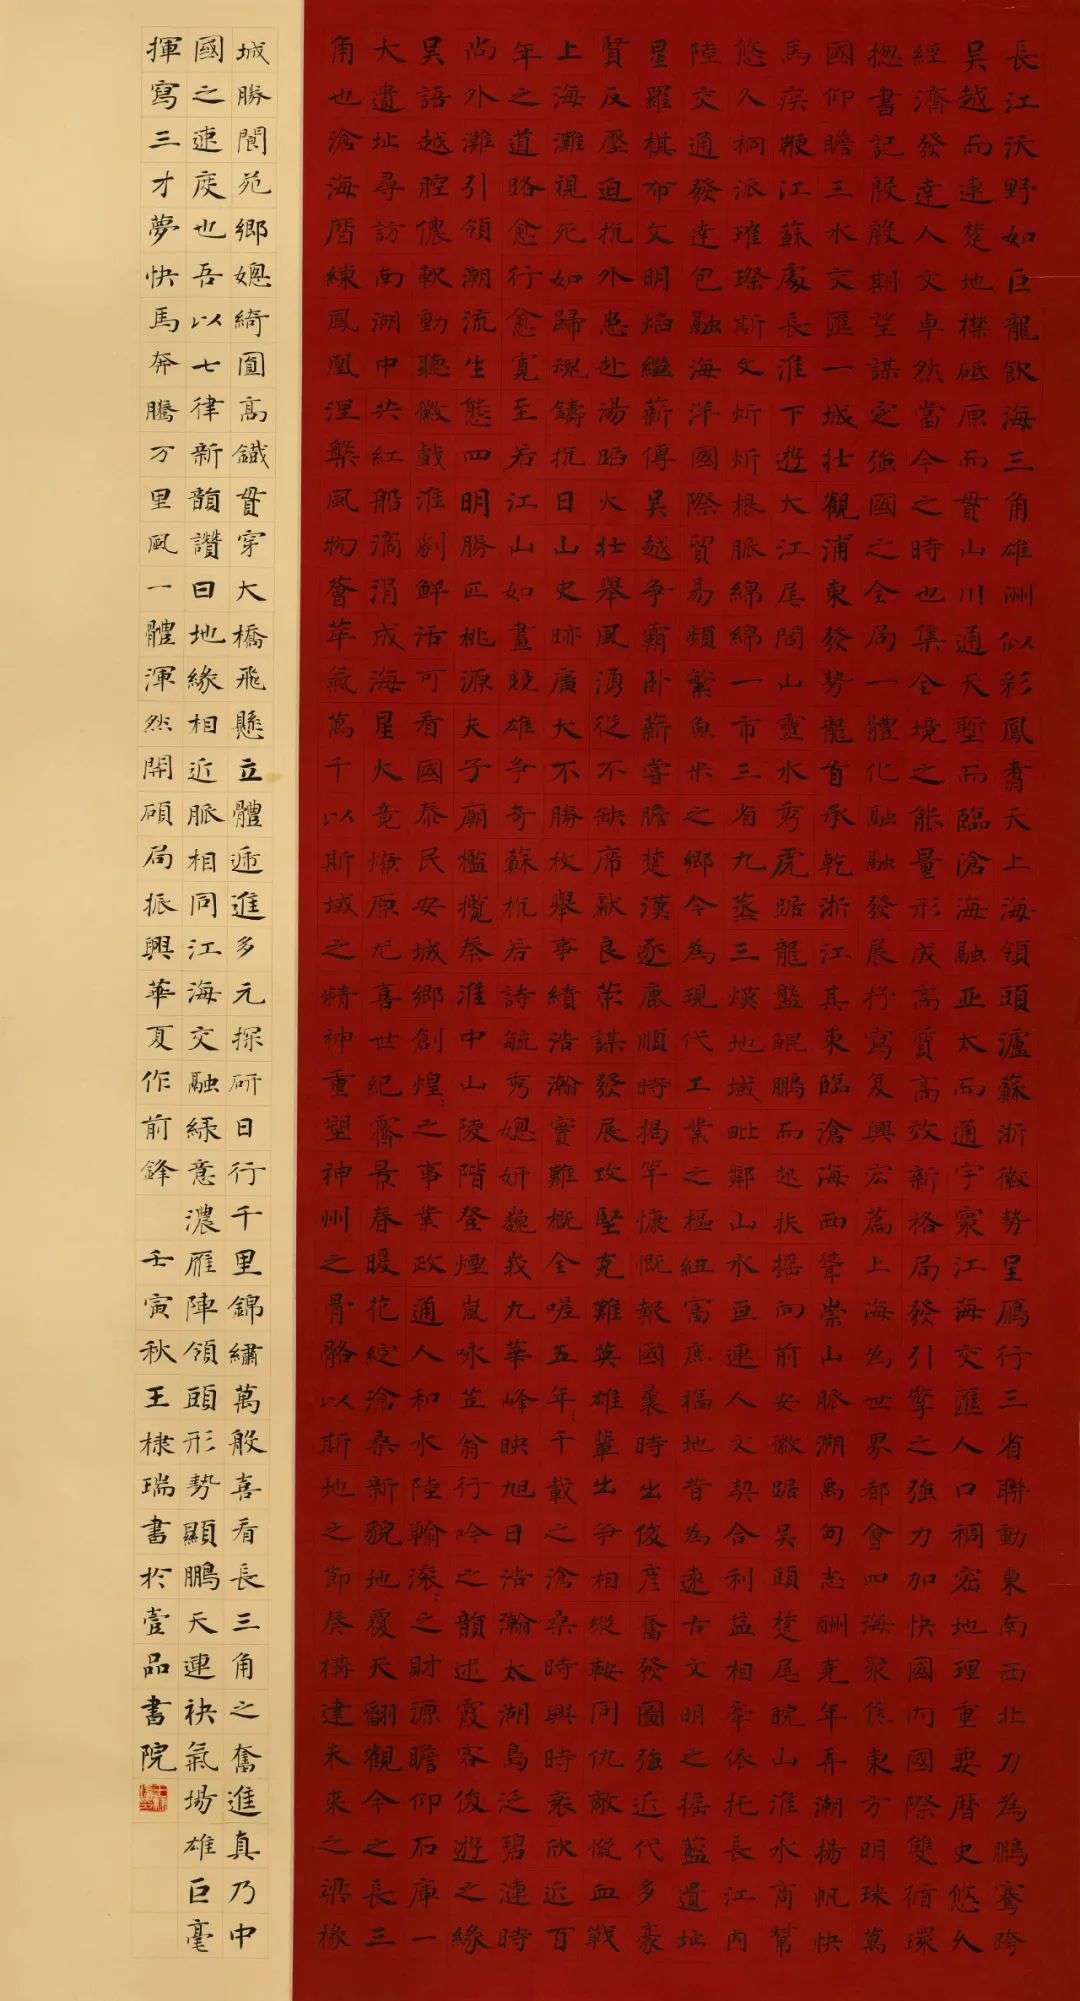 長江沃野如巨龍飲海三角雄洲似彩鳳翥天上海領頭瀘蘇浙徽勢呈雁行三省聯動東南西北力為鵬騫跨
吴越而連楚地襟砥原而貫山川通天塹而臨滄海融亞太而通宇寰江海交匯人口稠密地理重要曆史悠久
經濟發達人文卓然當今之時也集全境之能量形成高質高效新格局發引擎之強力加快國内國際雙循環
揔書記殷殷期望謀定強國之全局一體化融融發展抒寫复興宏篇上海為世界都會四海聚焦東方明珠萬
國仰瞻三水交匯一城壯觀浦東發势龍首承乾浙江其東臨滄海西聳崇山脈溯禹甸志酬堯年弄潮揚帆快
馬疾鞭江蘇處長淮下遊大江尾閭山靈水秀虎踞龍盤鯤鵬而起扶摇向前安徽踞吴頭楚尾皖山淮水商幫
悠久桐派璀璨斯文炘炘根脈綿綿一市三省九蒸三熯地域毗鄰山水亘連人文契合利益相牽依托長江内
陸交通發達包融海洋國際貿易頻繁魚米之鄉今為現代工業之樞紐富庶福地昔為遠古文明之摇藍遺址
星羅棋布文明焰繼薪傳吴越争霸卧薪嘗膽楚漢逐鹿順時揭竿慷慨報國曩時出俊彦奮發圖強近代多豪
賢反壓迫抗外患赴湯蹈火壮舉風湧從不缺席獻良策謀發展攻堅克難英雄輩出争相縱鞍同仇敵愾血戰
上海灘視死如歸魂鑄抗日山史跡廣大不勝枚舉事績浩瀚實難概全嗟五年千載之滄桑時興時衰欣近百
年之道路愈行愈寬至若江山如畫競雄争奇蘇杭若詩毓秀媲妍巍峩九華峰映旭日浩瀚太湖島泛碧漣時
尚外灘引領潮流生態四明勝匹桃源夫子廟檻攬秦淮中山陵階登煙嵐咏芷翁行吟之韻述霞客俊遊之緣
吴語越腔儂軟動聽徽戲淮劇鮮活可看國泰民安城鄉創煌之事業政通人和水陸輸滾之財源瞻仰石庫一
大遺址尋訪南湖中共紅船滴涓成海星火竟燎原尤喜世紀霽景春暖花綻滄桑新貌地覆天翻觀今之長三
角也滄海曆練鳳凰涅槃風物薈萃氣萬千以斯域之精神重塑神州之骨骼以斯地之節脊構建未來之梁椽
城勝閬苑鄉媲綺圓高鐵貫穿大橋飛懸立體遞進多元探研日行千里錦繡萬般喜看長三角之奮進真乃中
國之速度也吾以七律新韻讚曰地緣相近脈相同江海交融綠意濃雁陣領頭形勢顯鵬天連袂氣場雄巨毫
揮寫三才夢快馬奔騰万里風一體渾然開碩局振興華夏作前鋒 壬寅秋王棣瑞書於壹品書院